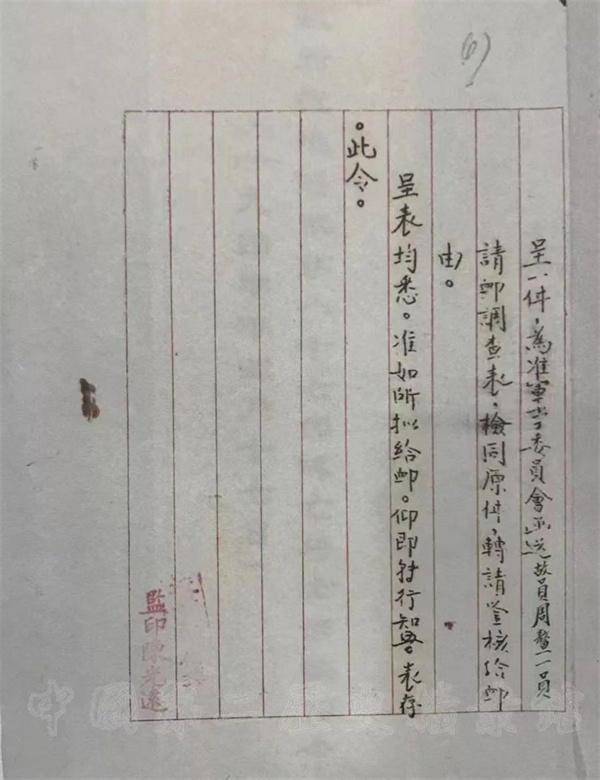 (6)
呈一件，為准軍事委員會函送故員周鰲一員
請卹調查表，檢同原件，轉請鉴核给卹
由。
呈表均悉。准如所拟给卹。仰即转行知照。表存
。此令。
監印陳光遠
中國第二歷史檔案館